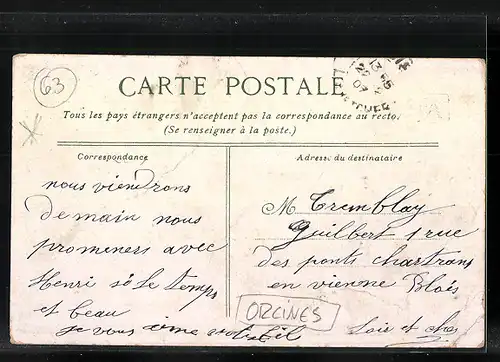 63
CARTE POSTALE
Tous les pays étrangers n'acceptent pas la correspondance au recto.
(Se renseigner à la poste.)
Correspondance
Adresse du destinataire
nous viendrons
demain nous
promeners avec
Henri si le temps
et beau
je vous aime
M Tremblay
Guilbert 1 rue
des ponts chartrans
en vienne Blois
Loir et cher
ORCINES